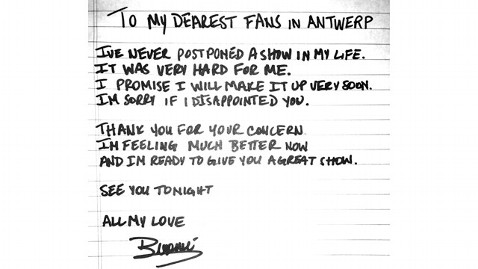 TO MY DEAREST FANS IN ANTWERP
I'VE NEVER POSTPONED A SHOW IN MY LIFE.
IT WAS VERY HARD FOR ME.
I PROMISE I WILL MAKE IT UP VERY SOON.
I'M SORRY IF I DISAPPOINTED YOU.
THANK YOU FOR YOUR CONCERN
I'M FEELING MUCH BETTER NOW
AND I'M READY TO GIVE YOU A GREAT SHOW.
SEE YOU TONIGHT
ALL MY LOVE